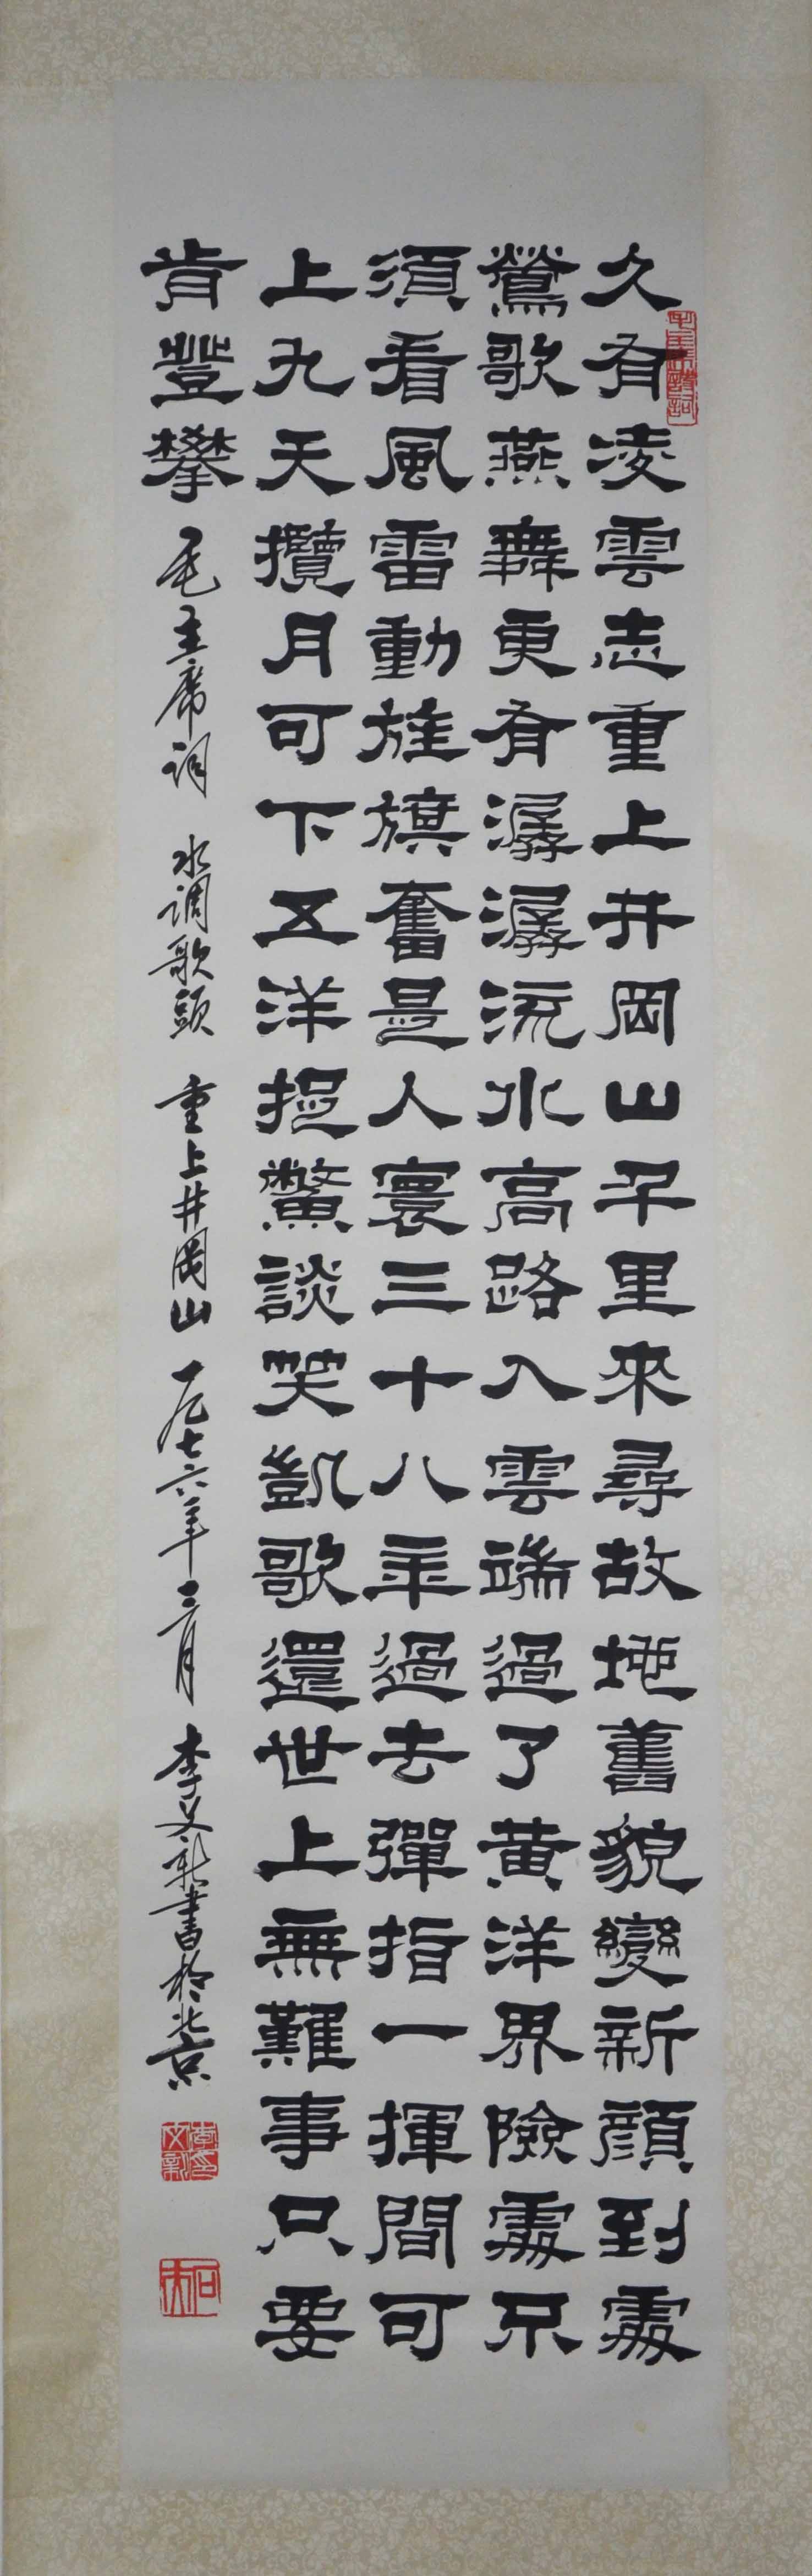 久有凌雲志重上井岡山千里來尋故地舊貌變新顔到處
鶯歌燕舞更有潺潺流水高路入雲端過了黄洋界險處不
須看風雷動旌旗奮是人寰三十八年過去彈指一揮間可
上九天攬月可下五洋捉鱉談笑凱歌還世上無難事只要
肯登攀 毛主席词 水调歌頭 重上井岡山 一九七六年二月 李文新書於北京
毛主席詩詞
李文新印